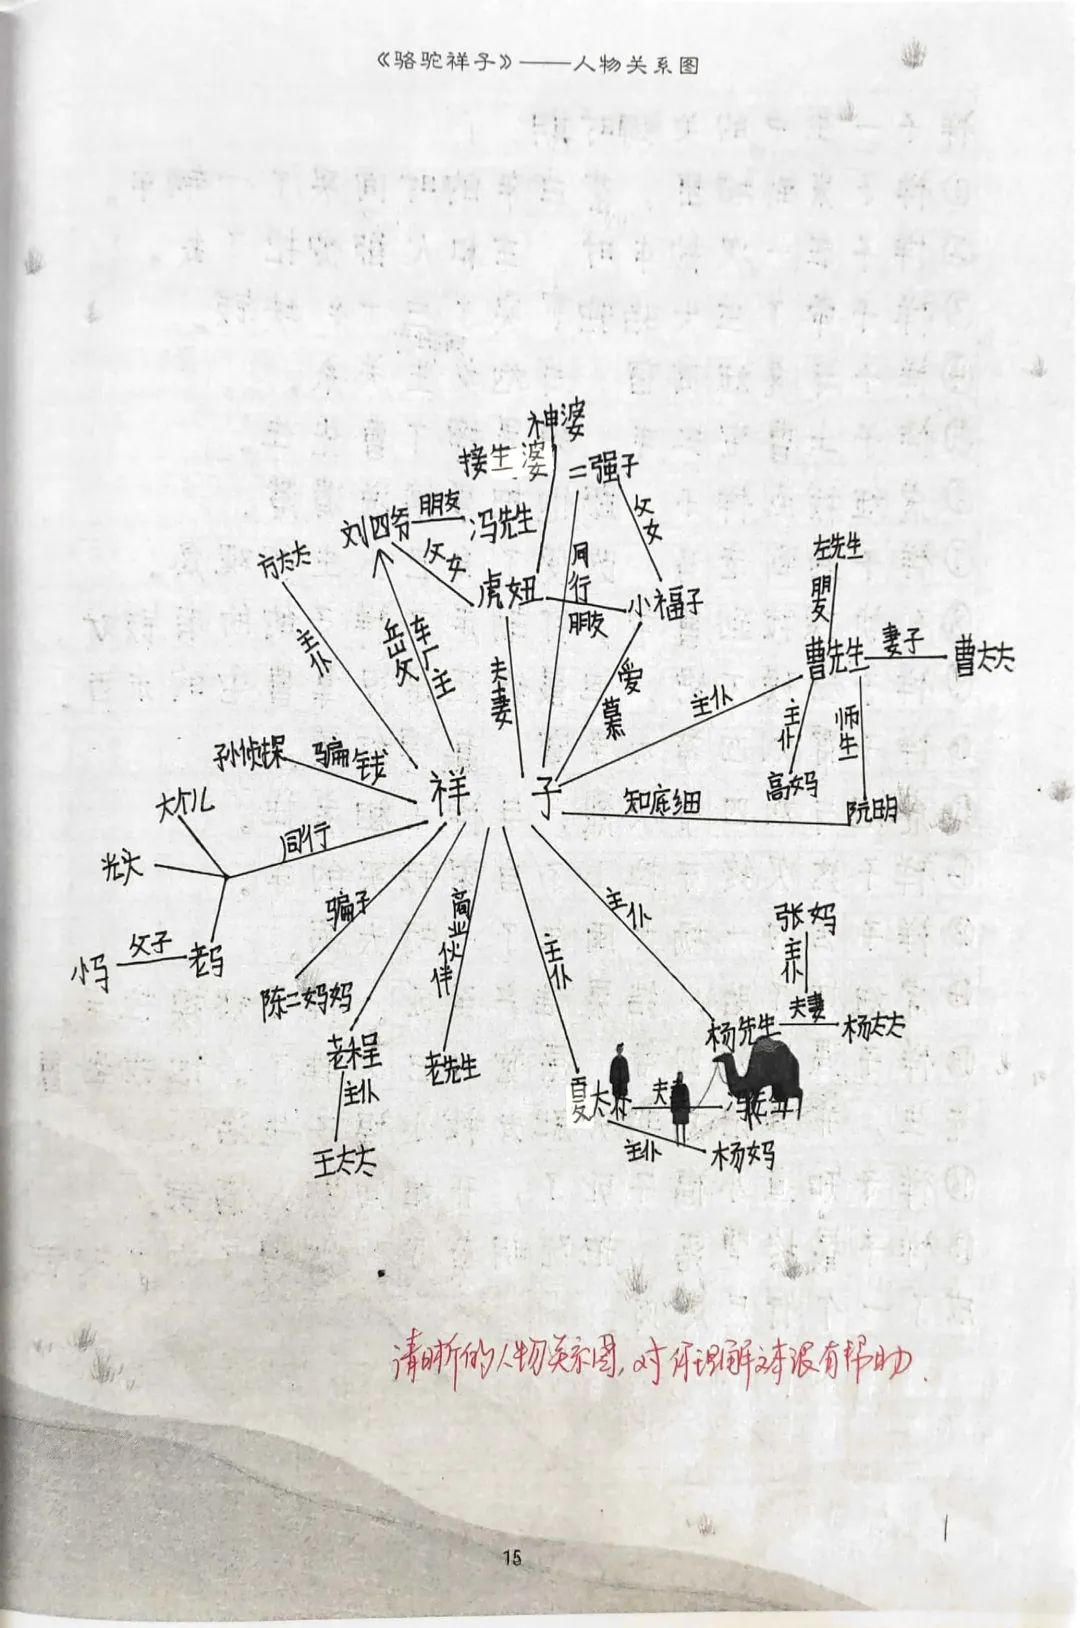 《骆驼祥子》——人物关系图
神婆
接生婆
二强子
刘四爷
朋友
冯先生
父女
父女
方太太
虎妞
同行
朋友
小福子
左先生
朋友
曹先生
妻子
曹太太
主仆
岳父
车厂主
夫妻
爱慕
主仆
主仆
师生
高妈
阮明
孙侦探
骗钱
祥子
知底细
大个儿
光头
同行
小马
父子
老马
骗子
陈二妈妈
商业伙伴
主仆
主仆
张妈
主仆
老程
主仆
王太太
老先生
杨先生
夫妻
杨太太
夏太太
主仆
杨妈
清晰的人物关系图,对你理解文本很有帮助.
15